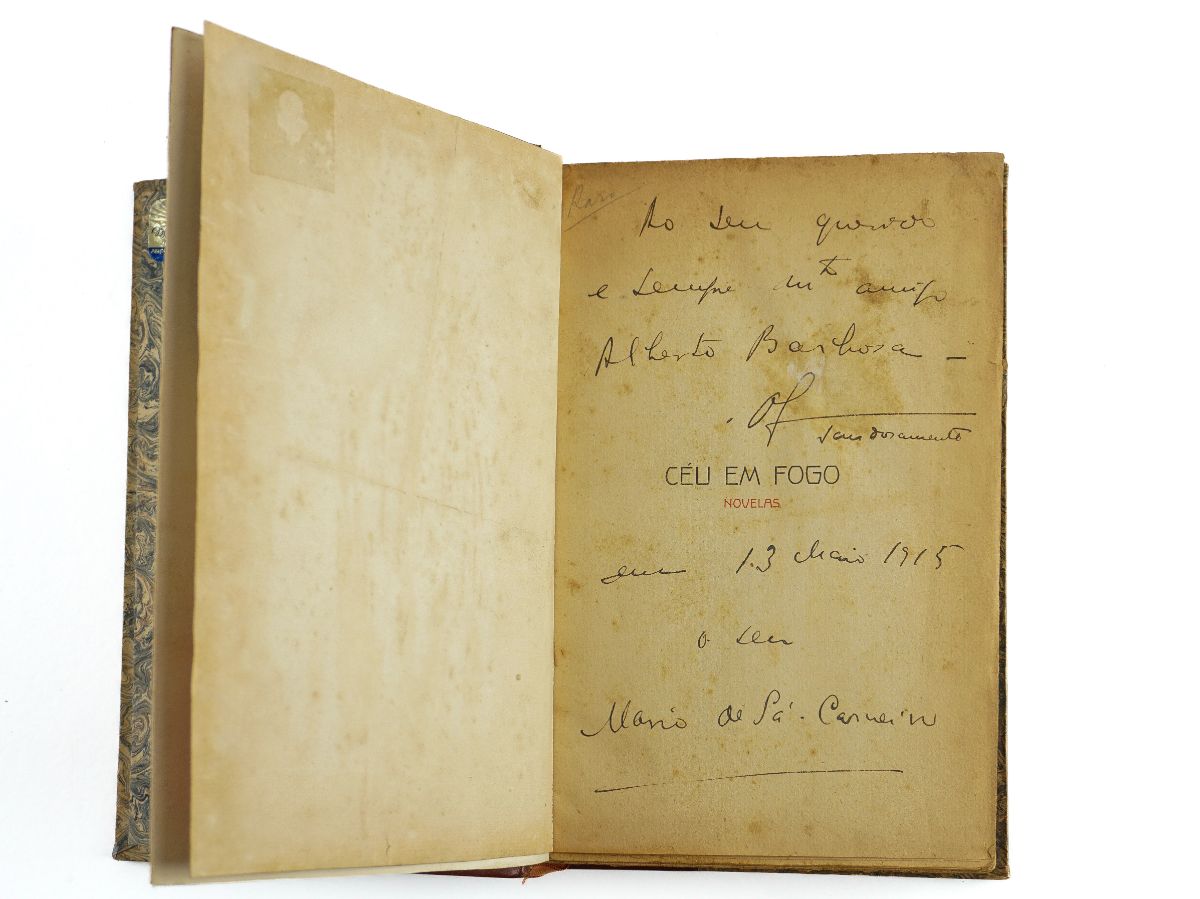 Raro
Ao seu querido
e sempre mto amigo
Alberto Barbosa —
Of
saudosamente
CÉU EM FOGO
NOVELAS
em 13 Maio 1915
o seu
Mario de Sá-Carneiro